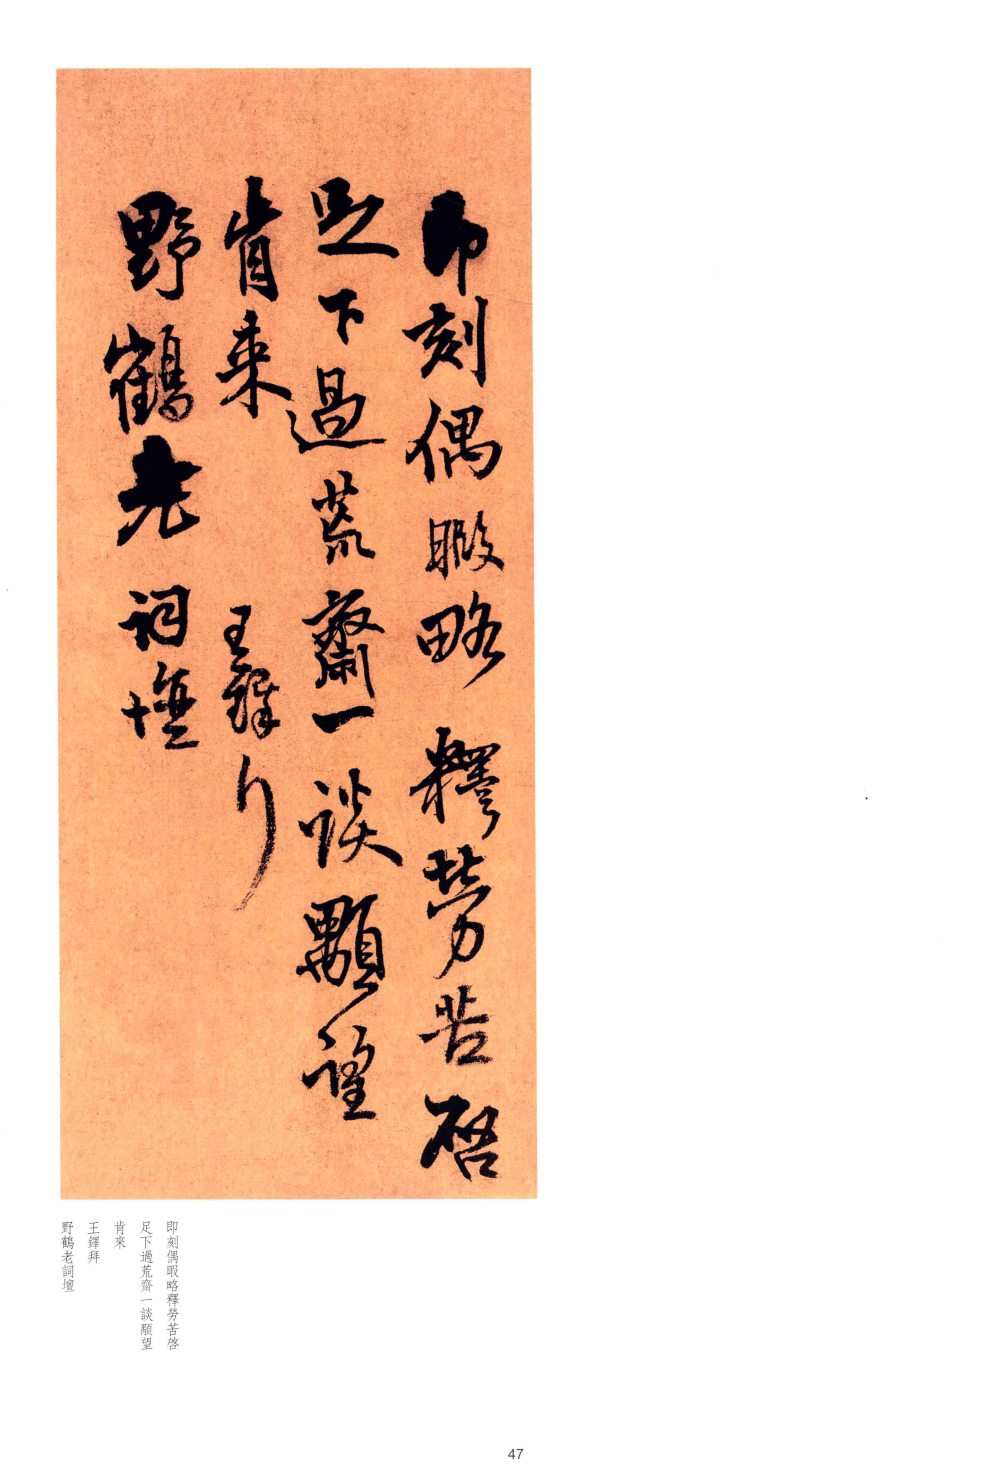 即刻偶暇略釋勞苦啓
足下過荒齋一談顒望
肯來
王鐸拜
野鶴老詞壇
即刻偶暇略釋勞苦啓
足下過荒齋一談顒望
肯來
王鐸拜
野鶴老詞壇
47